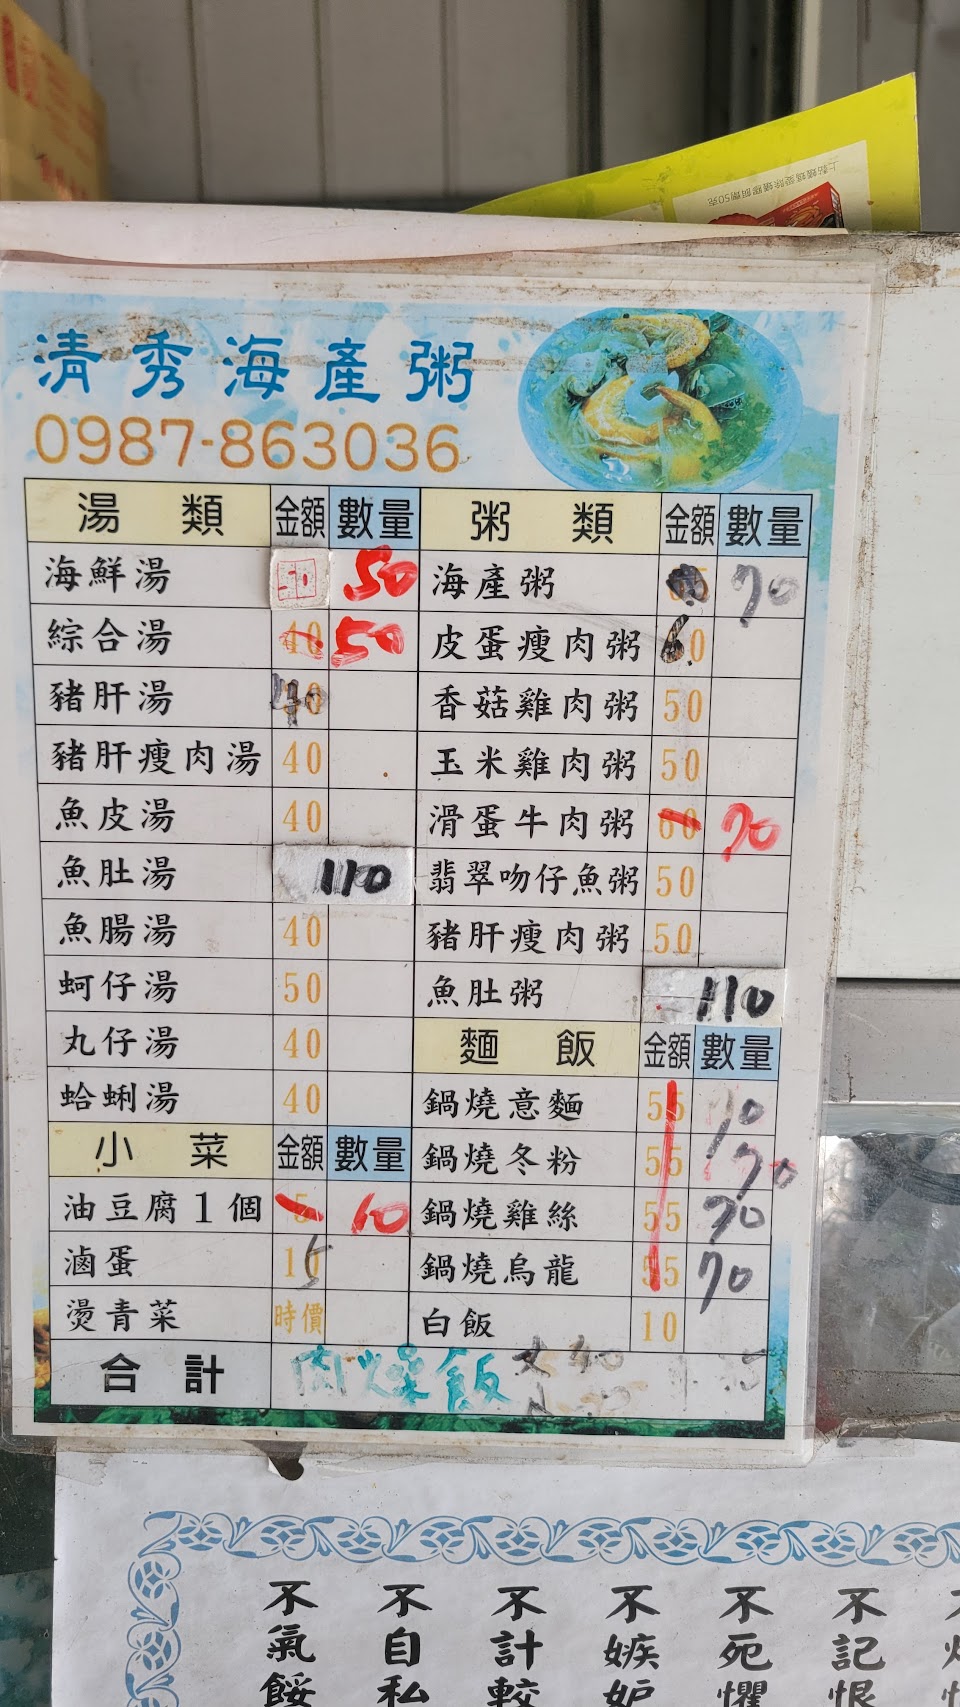 上黏蟻螞愛除蟻膠餌劑50克
清秀海產粥
0987-863036
湯類 金額 數量
海鮮湯 50
綜合湯 40 50
豬肝湯
豬肝瘦肉湯 40
魚皮湯 40
魚肚湯 110
魚腸湯 40
蚵仔湯 50
丸仔湯 40
蛤蜊湯 40
小菜 金額 數量
油豆腐1個 5 10
滷蛋 15
燙青菜 時價
合計 肉燥飯 大40
粥類 金額 數量
海產粥 70
皮蛋瘦肉粥 60
香菇雞肉粥 50
玉米雞肉粥 50
滑蛋牛肉粥 60 70
翡翠吻仔魚粥 50
豬肝瘦肉粥 50
魚肚粥 110
麵飯 金額 數量
鍋燒意麵 55 70
鍋燒冬粉 55 70
鍋燒雞絲 55 70
鍋燒烏龍 55 70
白飯 10
不氣餒
不自私
不計較
不嫉妒
不死懼
不記恨